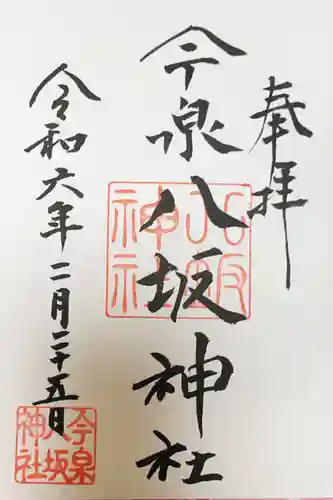 奉拝
今泉八坂神社
令和六年二月二十五日
八坂神社
今泉八坂神社